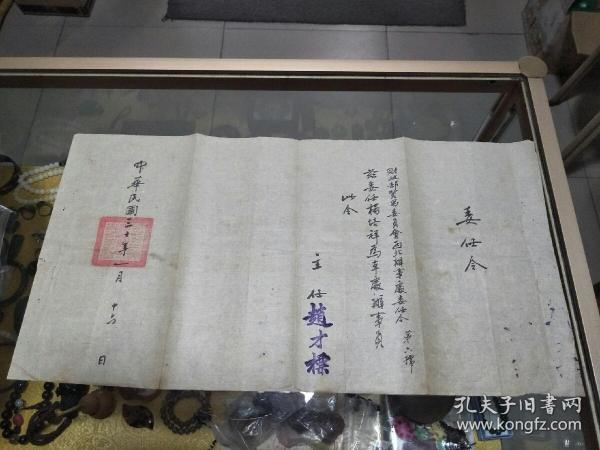 委任令
財政部貿易委員會西北辦事處委任令 第六號
茲委任楊培祥為本處辦事員
此令
主任 趙才標
中華民國三十年一月十六日
孔夫子旧书网
www.kongfz.com